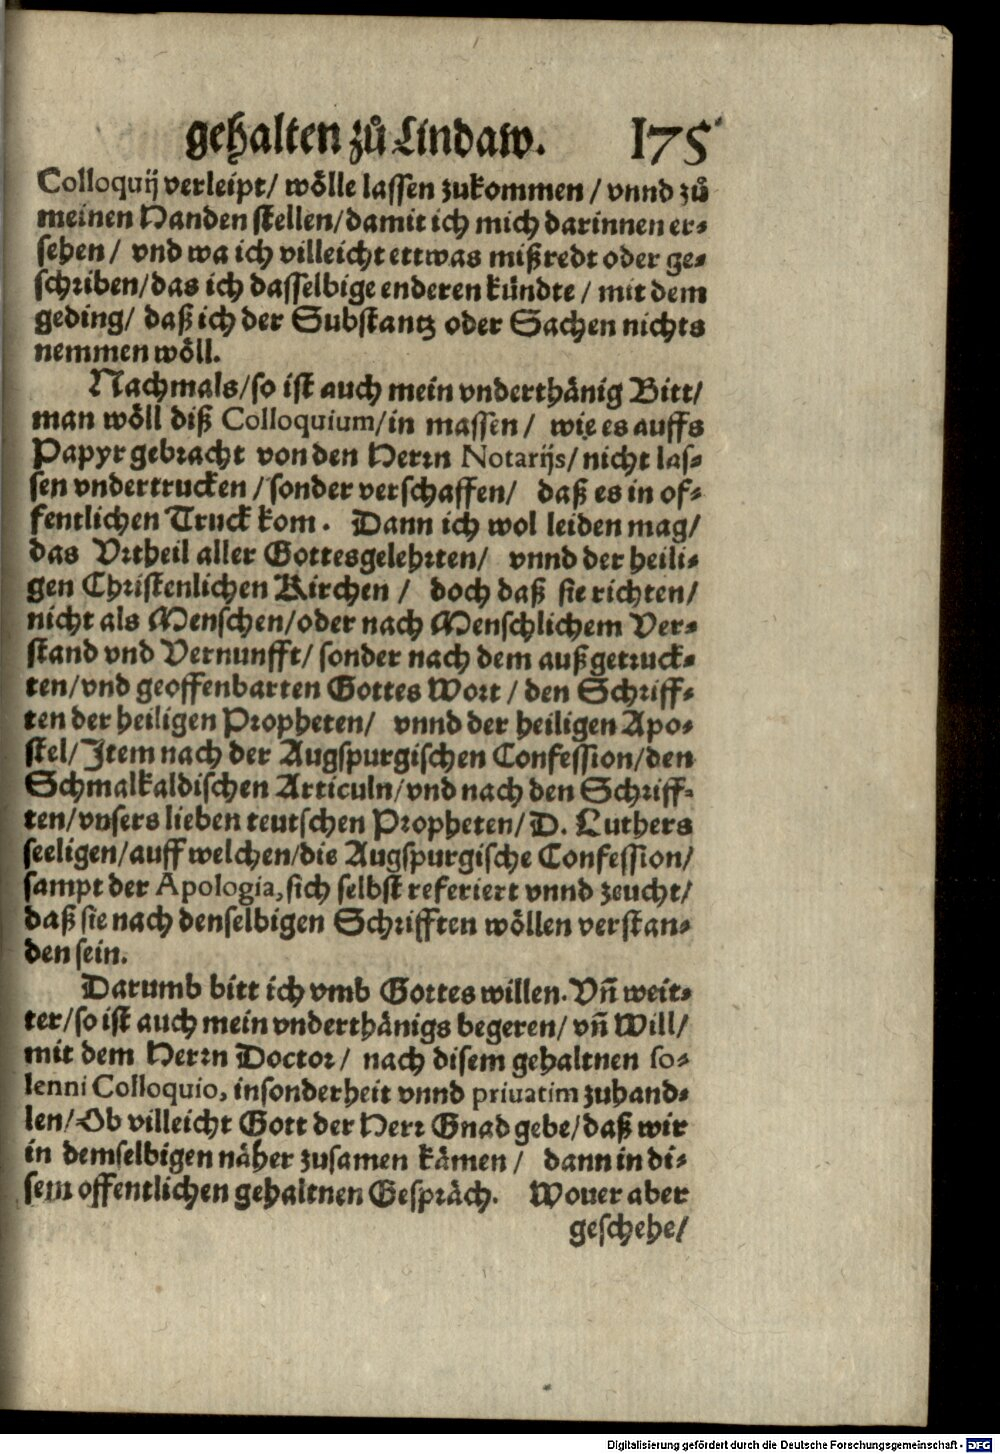 gehalten zů Lindaw. 175
Colloquij verleipt/ wölle lassen zukommen / vnnd zů
meinen Handen stellen/damit ich mich darinnen er⸗
sehen/ vnd wa ich villeicht ettwas mißredt oder ge⸗
schriben/das ich dasselbige enderen kündte / mit dem
geding/ daß ich der Substantz oder Sachen nichts
nemmen wöll.
Nachmals/so ist auch mein vnderthänig Bitt/
man wöll diß Colloquium/in massen / wie es auffs
Papyr gebracht von den Herrn Notarijs/ nicht las⸗
sen vndertrucken /sonder verschaffen/ daß es in of⸗
fentlichen Truck kom. Dann ich wol leiden mag/
das Vrtheil aller Gottesgelehrten/ vnnd der heili⸗
gen Christenlichen Kirchen / doch daß sie richten/
nicht als Menschen/oder nach Menschlichem Ver⸗
stand vnd Vernunfft/ sonder nach dem außgetruck⸗
ten/vnd geoffenbarten Gottes Wort / den Schriff⸗
ten der heiligen Propheten/ vnnd der heiligen Apo⸗
stel/ Item nach der Augspurgischen Confession/den
Schmalkaldischen Articuln/vnd nach den Schriff⸗
ten/vnsers lieben teutschen Propheten/ D. Luthers
seeligen/auff welchen/die Augspurgische Confession/
sampt der Apologia, sich selbst referiert vnnd zeucht/
daß sie nach denselbigen Schrifften wöllen verstan⸗
den sein.
Darumb bitt ich vmb Gottes willen. Vñ weit⸗
ter/so ist auch mein vnderthänigs begeren/ vñ Will/
mit dem Herrn Doctor/ nach disem gehaltnen so⸗
lenni Colloquio, insonderheit vnnd priuatim zuhand⸗
len/Ob villeicht Gott der Herr Gnad gebe/daß wir
in demselbigen näher zusamen kämen / dann in di⸗
sem offentlichen gehaltnen Gespräch. Wouer aber
geschehe/
Digitalisierung gefördert durch die Deutsche Forschungsgemeinschaft - DFG